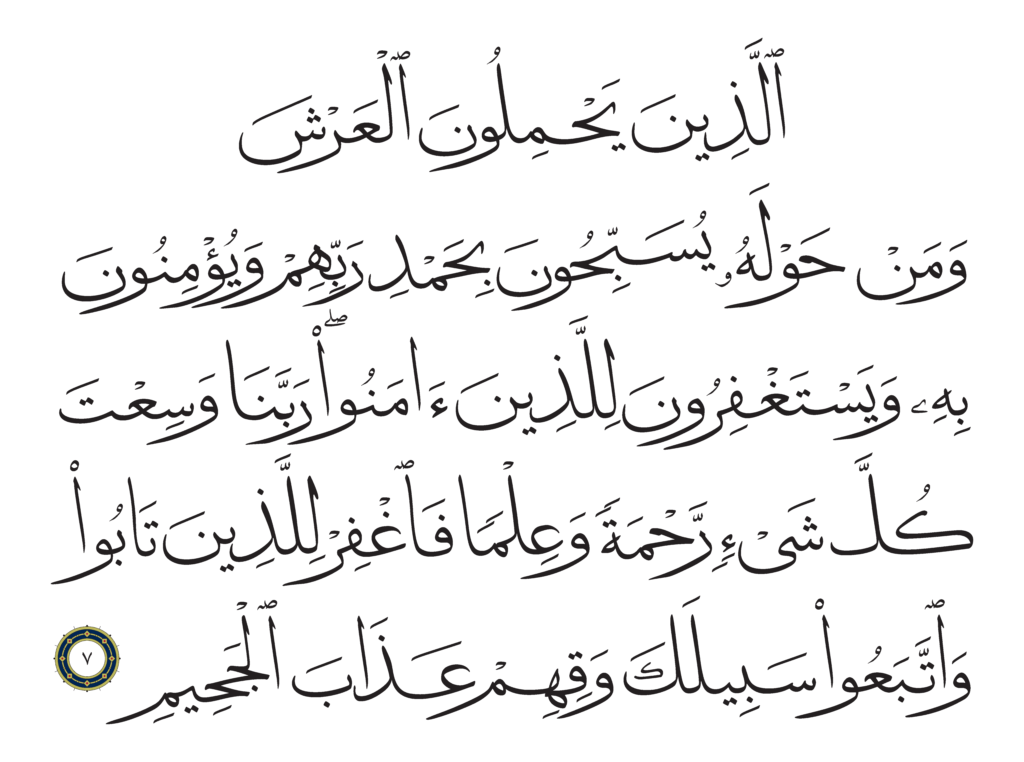 ٱلَّذِينَ يَحْمِلُونَ ٱلْعَرْشَ
وَمَنْ حَوْلَهُۥ يُسَبِّحُونَ بِحَمْدِ رَبِّهِمْ وَيُؤْمِنُونَ
بِهِۦ وَيَسْتَغْفِرُونَ لِلَّذِينَ ءَامَنُوا۟ ۖ رَبَّنَا وَسِعْتَ
كُلَّ شَىْءٍ رَّحْمَةً وَعِلْمًا فَٱغْفِرْ لِلَّذِينَ تَابُوا۟
وَٱتَّبَعُوا۟ سَبِيلَكَ وَقِهِمْ عَذَابَ ٱلْجَحِيمِ ٧